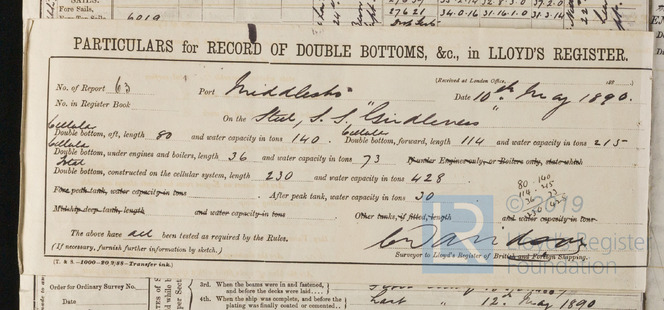 Fore Sails,
6019
27621 34.0.16 31.16.1.0 31.2.14
PARTICULARS for RECORD OF DOUBLE BOTTOMS, &c., in LLOYD'S REGISTER.
(Received at London Office, 188
No. of Report 63 Port Middlesbro Date 10th May 1890.
No. in Register Book
On the Steel, S. S. "Girdleness"
Cellular Cellular
Double bottom, aft, length 80 and water capacity in tons 140. Double bottom, forward, length 114 and water capacity in tons 215
Cellular
Double bottom, under engines and boilers, length 36 and water capacity in tons 73 If under Engines only, or Boilers only, state which
Total
Double bottom, constructed on the cellular system, length 230 and water capacity in tons 428
Fore peak tank, water capacity in tons . After peak tank, water capacity in tons 30
80 140
114
36 73
230
Midship deep tank, length and water capacity in tons Other tanks, if fitted, length and water capacity in tons
The above have all been tested as required by the Rules.
(If necessary, furnish further information by sketch.)
Surveyor to Lloyd's Register of British and Foreign Shipping.
[T. & S.—1000—20/9/88—Transfer ink.]
© 2019
Lloyd's Register
Foundation
Order for Ordinary Survey No.
Date
3rd. When the beams were in and fastened,
and before the decks were laid....
4th. When the ship was complete, and before the
plating was finally coated or cemented..
Last " 12th May 1890